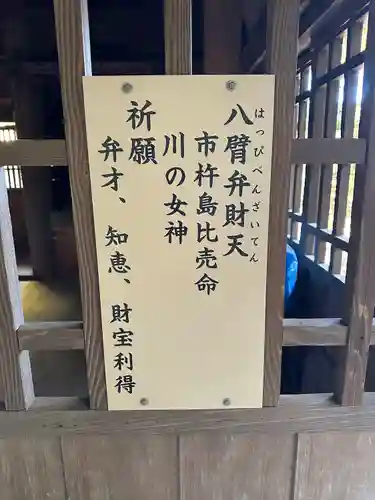 八臂弁財天
はっぴべんざいてん
市杵島比売命
川の女神
祈願
弁才、知恵、財宝利得